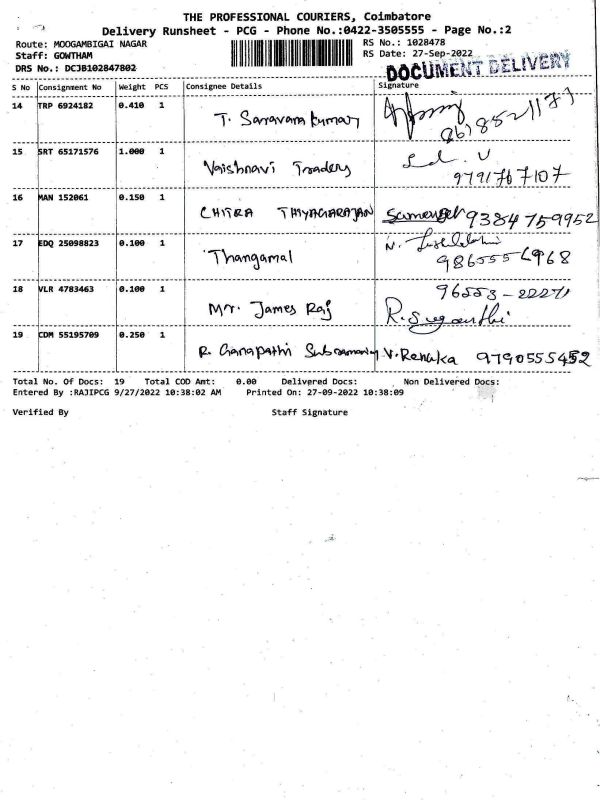 THE PROFESSIONAL COURIERS, Coimbatore
Delivery Runsheet - PCG - Phone No.:0422-3505555 - Page No.:2
Route: MOOGAMBIGAI NAGAR
RS No.: 1028478
Staff: GOWTHAM
RS Date: 27-Sep-2022
DRS No.: DCJB102847802
DOCUMENT DELIVERY
S No Consignment No Weight PCS Consignee Details Signature
14 TRP 6924182 0.410 1
T. Saravana Kumar
15 SRT 65171576 1.000 1
Vaishnavi Traders
9791767107
16 MAN 152061 0.150 1
CHITRA THIYAGARAJAN 9384759952
17 EDQ 25098823 0.100 1
Thangamal
18 VLR 4783463 0.100 1
Mr. James Raj
R. Suganthi
19 CDM 55195709 0.250 1
R. Ganapathi V. Renuka 9790555452
Total No. Of Docs: 19 Total COD Amt: 0.00 Delivered Docs: Non Delivered Docs:
Entered By :RAJIPCG 9/27/2022 10:38:02 AM Printed On: 27-09-2022 10:38:09
Verified By Staff Signature